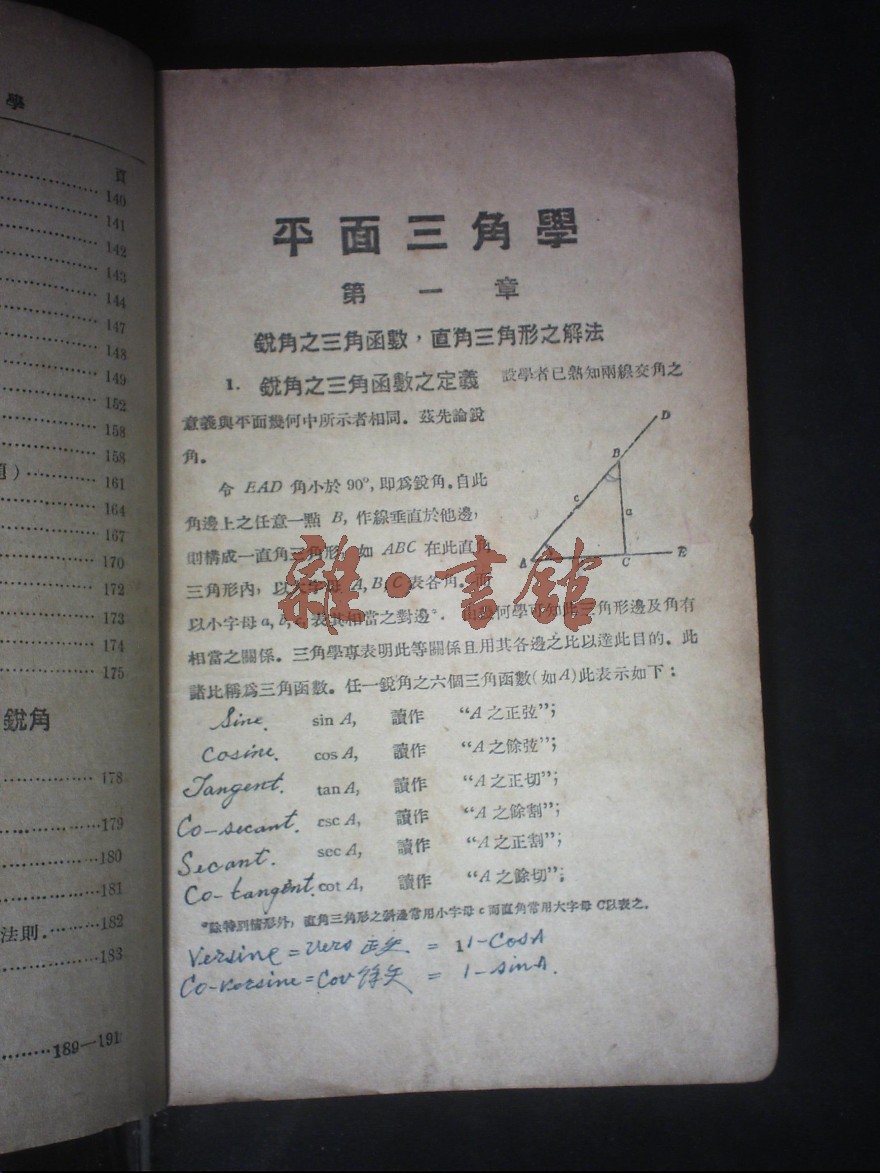 學
頁
140
141
142
143
144
147
148
149
152
158
158
題)············161
164
167
170
172
173
174
175
銳角
178
179
180
181
法則·······182
183
189—191
平面三角學
第一章
銳角之三角函數，直角三角形之解法
1. 銳角之三角函數之定義 設學者已熟知兩線交角之
意義與平面幾何中所示者相同。茲先論銳
角。
令 EAD 角小於 90°，即爲銳角。自此
角邊上之任意一點 B，作線垂直於他邊，
則構成一直角三角形。如 ABC 在此直角
三角形內，以大字母 A, B, C 表各角。而
以小字母 a, b, c, 表其相當之對邊*. 由幾何學可知此三角形邊及角有
相當之關係。三角學專表明此等關係且用其各邊之比以達此目的。此
諸比稱爲三角函數。任一銳角之六個三角函數(如A)此表示如下：
D
B
c
a
A
C
E
雜·書館
Sine. sin A, 讀作 “A 之正弦”；
Cosine. cos A, 讀作 “A 之餘弦”；
Tangent. tan A, 讀作 “A 之正切”；
Co-secant. csc A, 讀作 “A 之餘割”；
Secant. sec A, 讀作 “A 之正割”；
Co-tangent. cot A, 讀作 “A 之餘切”。
*除特別情形外，直角三角形之斜邊常用小字母 c 而直角常用大字母 C以表之。
1
Versine = Vers 正矢 = 1-CosA
Co-versine = Cov 餘矢 = 1-sinA.